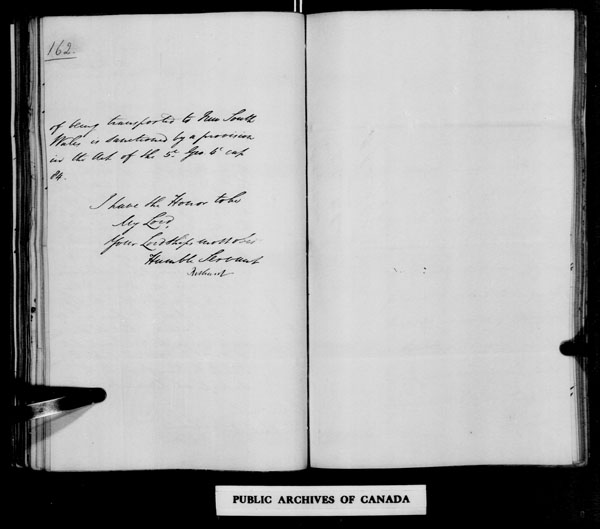 162.
of being transported to New South
Wales is sanctioned by a provision
in the Act of the 5th Geo. 4th cap
84.
I have the Honor to be
My Lord,
Your Lordships most obed
Humble Servant
Bathurst
PUBLIC ARCHIVES OF CANADA